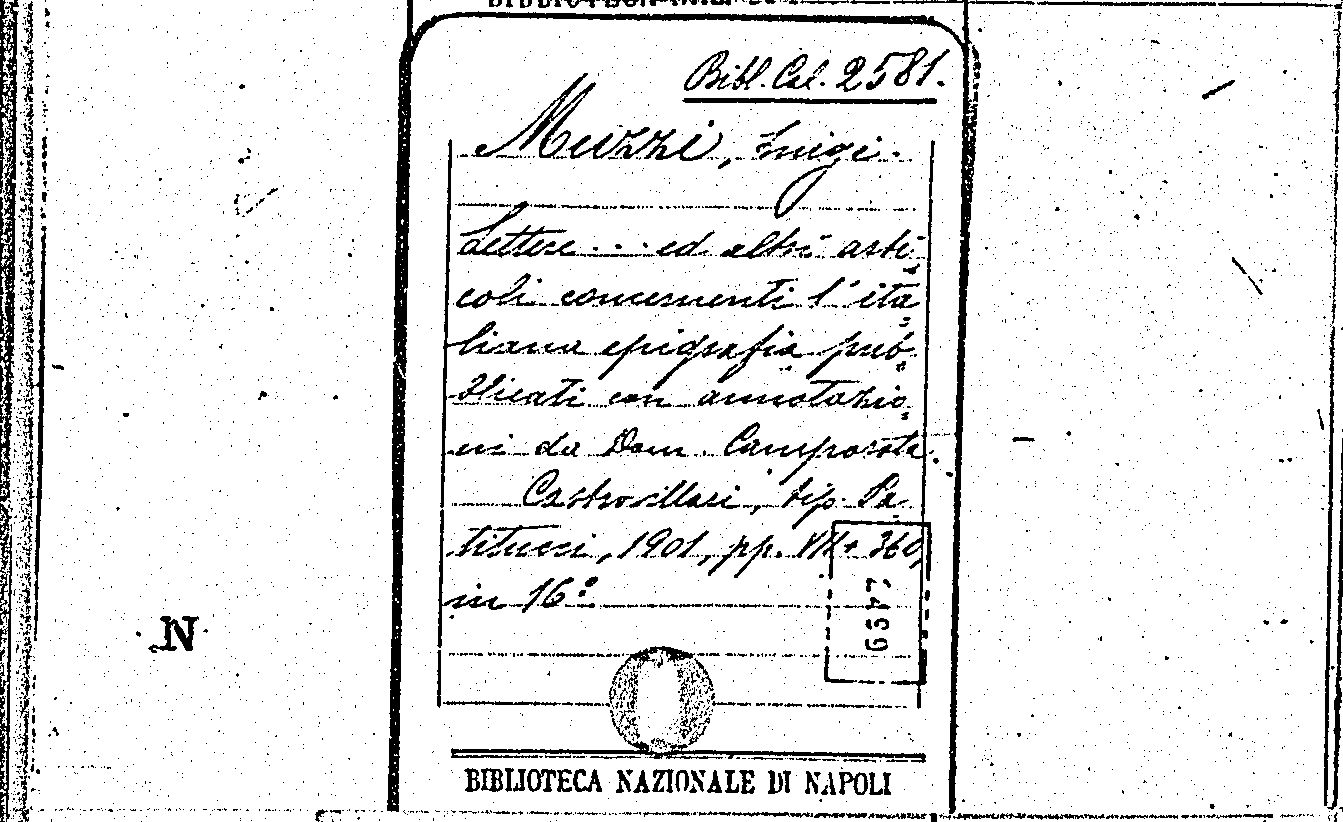 Bibl. Cal. 2581.
Muzzi, Luigi.
Lettere ... ed altri arti
coli concernenti l'ita
liana epigrafia pub
blicati con annotazio
ni da Dom. Camporota.
Castrovillari, tip. Pa
titucci, 1901, pp. VII + 360,
in 16º.
N
BIBLIOTECA NAZIONALE DI NAPOLI